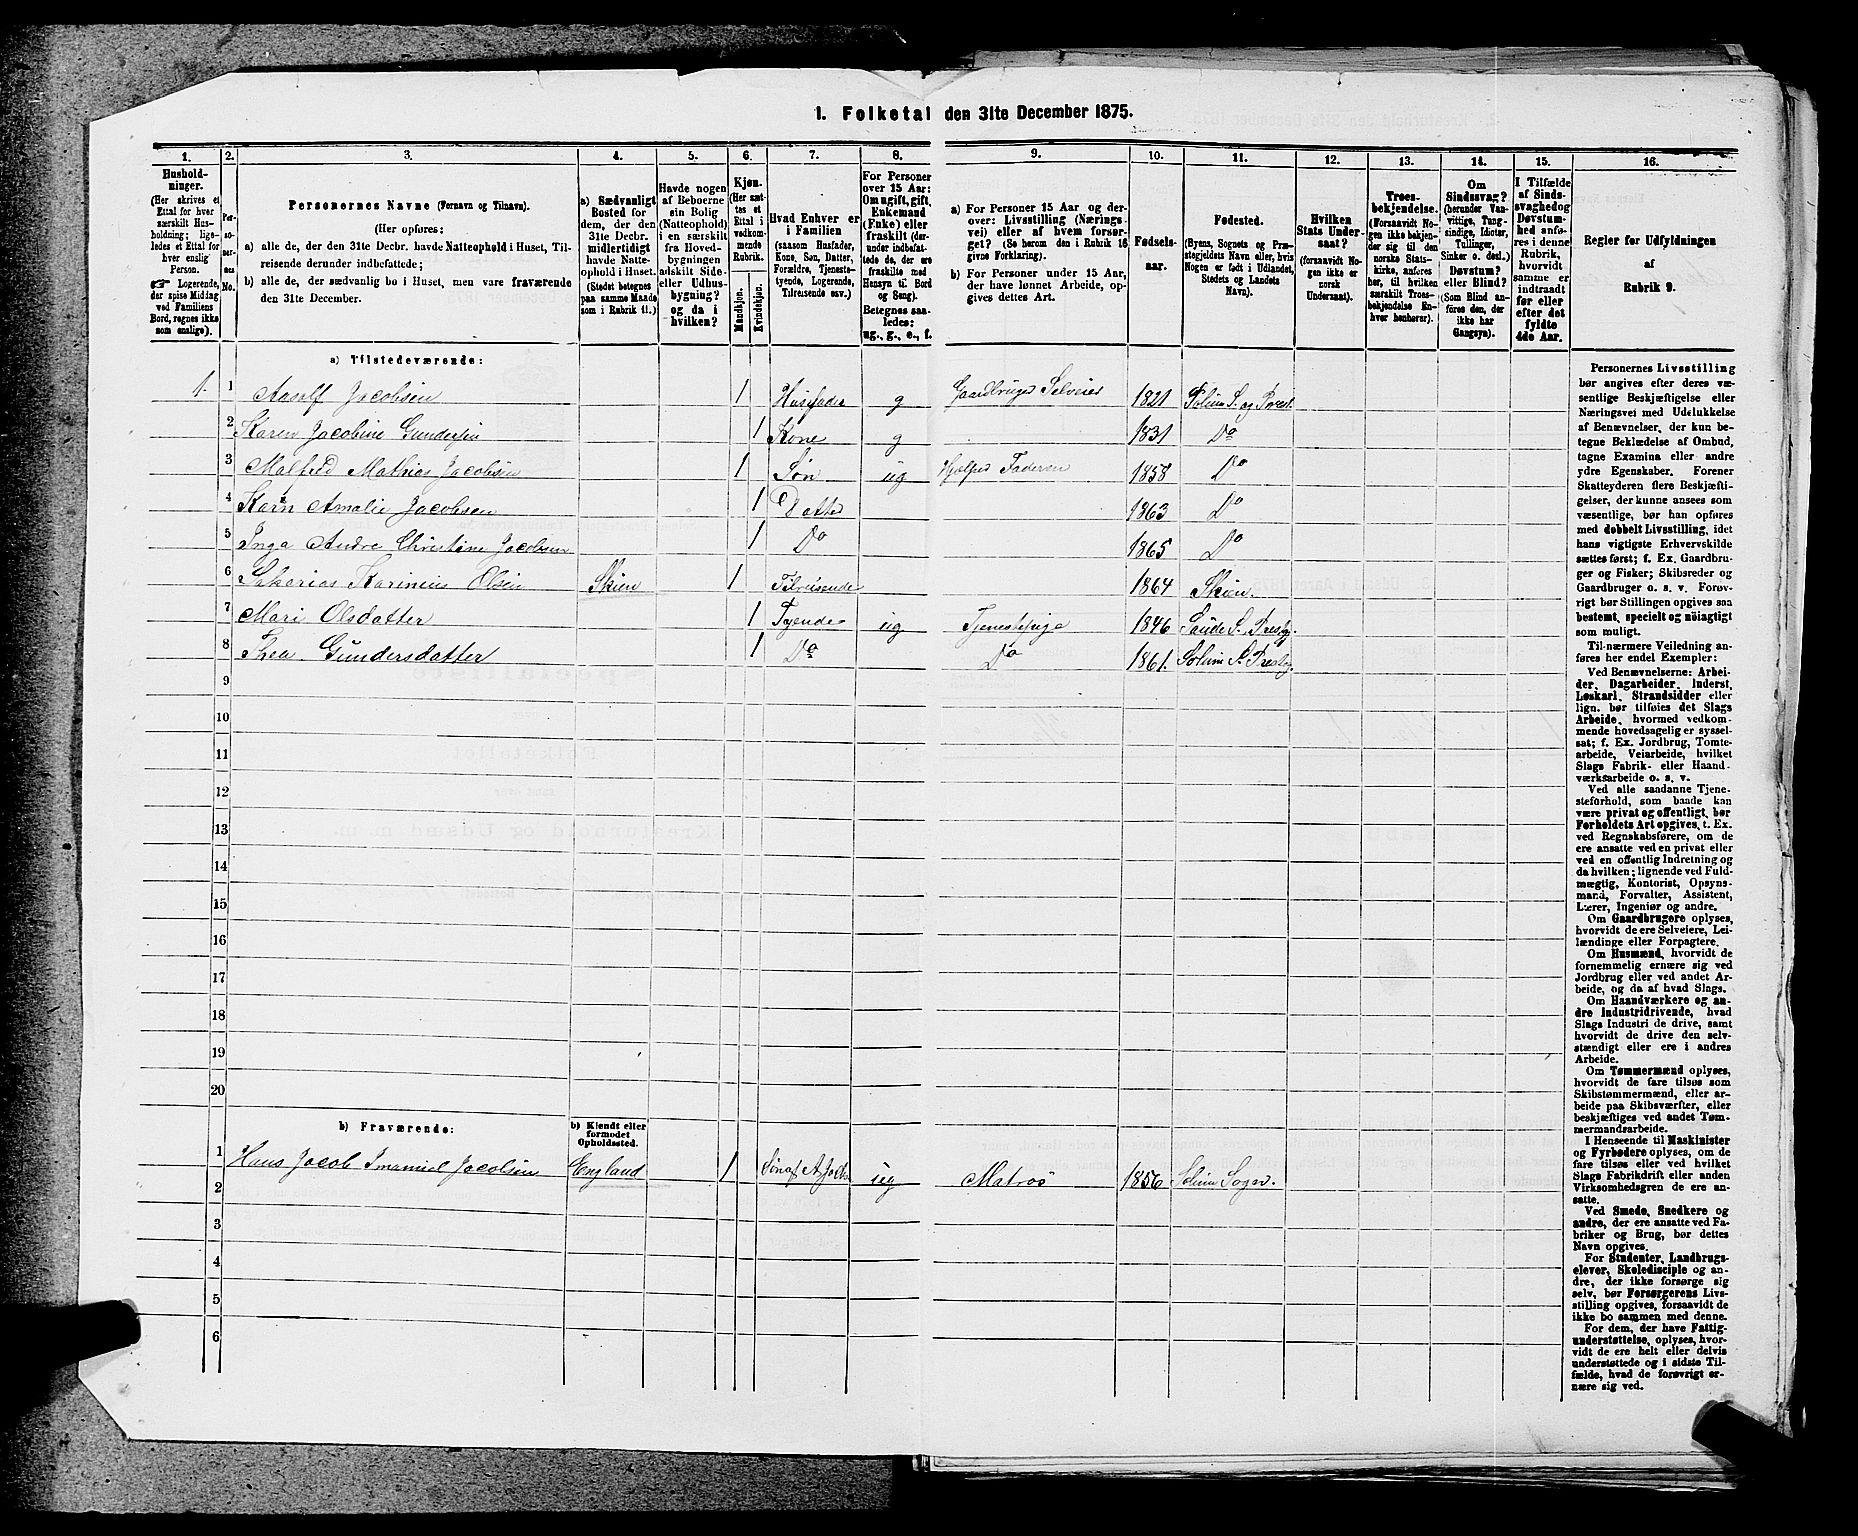 1. Folketal den 31te December 1875.
1. 2. 3. 4. 5. 6. 7. 8. 9. 10. 11. 12. 13. 14. 15. 16.
Hushold-
ninger.
(Her skrives et
Ettal for hver
særskilt Hus-
holdning; lige-
ledes et Ettal for
hver enslig
Person.
☞ Logerende,
der spise Middag
ved Familiens
Bord, regnes ikke
som enslige).
Per-
so-
ner-
nes
No.
Personernes Navne (Fornavn og Tilnavn).
(Her opføres:
a) alle de, der den 31te Decbr. havde Natteophold i Huset, Til-
reisende derunder indbefattede;
b) alle de, der sædvanlig bo i Huset, men vare fraværende
den 31te December.
a) Sædvanligt
Bosted for
dem, der den
31te Decbr.
midlertidigt
havde Natte-
ophold i Huset.
(Stedet betegnes
paa samme Maade
som i Rubrik 11.)
Havde nogen
af Beboerne
sin Bolig
(Natteophold)
i en særskilt
fra Hoved-
bygningen
adskilt Side-
eller Udhus-
bygning?
og da i
hvilken?
Kjøn.
(Her sæt-
tes et
Ettal i
vedkom-
mende
Rubrik.
Mandkjøn.
Kvindekjøn.
Hvad Enhver er
i Familien
(saasom Husfader,
Kone, Søn, Datter,
Forældre, Tjeneste-
tyende, Logerende,
Tilreisende osv.)
For Personer
over 15 Aar:
Om ugift, gift,
Enkemand
(Enke) eller
fraskilt (der-
under indbefat-
tede de, der ere
fraskilte med
Hensyn til Bord
og Seng).
Betegnes saa-
ledes:
ug., g., e., f.
a) For Personer 15 Aar og der-
over: Livsstilling (Nærings-
vei) eller af hvem forsør-
get? (Se herom den i Rubrik 16
givne Forklaring).
b) For Personer under 15 Aar,
der have lønnet Arbeide, op-
gives dettes Art.
Fødsels-
aar.
Fødested.
(Byens, Sognets og Præ-
stegjeldets Navn eller, hvis
Nogen er født i Udlandet,
Stedets og Landets
Navn).
Hvilken
Stats Under-
saat?
(foraavidt No-
gen ikke er
norsk
Undersaat).
Troes-
bekjendelse.
(Forsaavidt No-
gen ikke bekjen-
der sig til den
norske Stats-
kirke, anføres
her, til hvilken
særskilt Troes-
bekjendelse En-
hver henhører).
Om
Sindssvag?
(herunder Van-
vittige, Tung-
sindige, Idioter,
Tullinger,
Sinker o. desl.).
Døvstum?
eller Blind?
(Som Blind an-
føres den, der
ikke har
Gangsyn).
I Tilfælde
af Sinds-
svaghed og
Døvstum-
hed anfø-
res i denne
Rubrik,
hvorvidt
samme er
indtraadt
før eller
efter det
fyldte
4de Aar.
Regler for Udfyldningen
af
Rubrik 9.
a) Tilstedeværende:
1. 1 Aaolf Jacobsen 1 Husfader g Gaardbruger Selveier 1821 Solum S. og Prest.
2 Karen Jacobine Gundersen 1 Kone g 1831 Do
3 Malfred Mathias Jacobsen 1 Søn ug Hjelper Faderen 1858 Do
4 Karn Amalie Jacobsen 1 Datter 1863 Do
5 Inga Andre Christine Jacobsen 1 Do 1865 Do
6 Sakarias Karinius Olsen Skien 1 Tilreisende 1864 Skien.
7 Mari Olsdatter 1 Tyende ug Tjenestepige 1846 Saude S. Presteg.
8 Thea Gundersdatter 1 Do Do 1861. Solum S. Presteg
9
10
11
12
13
14
15
16
17
18
19
20
b) Fraværende:
b) Kjendt eller
formodet
Opholdssted.
1 Hans Jacob Imanuel Jacobsen England 1 Søn af A Jacobs. ug Matros 1856 Solum Sogn.
2
3
4
5
6
Personernes Livsstilling
bør angives efter deres væ-
sentlige Beskjæftigelse eller
Næringsvei med Udelukkelse
af Benævnelser, der kun be-
tegne Beklædelse af Ombud,
tagne Examina eller andre
ydre Egenskaber. Forener
Skatteyderen flere Beskjæfti-
gelser, der kunne ansees som
væsentlige, bør han opføres
med dobbelt Livsstilling, idet
hans vigtigste Erhvervskilde
sættes først; f. Ex. Gaardbru-
ger og Fisker; Skibsreder og
Gaardbruger o. s. v. Forøv-
rigt bør Stillingen opgives saa
bestemt, specielt og nøiagtigt
som muligt.
Til nærmere Veiledning an-
føres her endel Exempler:
Ved Benævnelserne: Arbei-
der, Dagarbeider, Inderst,
Løskarl, Strandsidder eller
lign. bør tilføies det Slags
Arbeide, hvormed vedkom-
mende hovedsagelig er syssel-
sat; f. Ex. Jordbrug, Tomte-
arbeide, Veiarbeide, hvilket
Slags Fabrik- eller Haand-
værksarbeide o. s. v.
Ved alle saadanne Tjene-
steforhold, som baade kan
være privat og offentligt, bør
Forholdets Art opgives, t. Ex.
ved Regnskabsførere, om de
ere ansatte ved en privat eller
ved en offentlig Indretning og
da hvilken; lignende ved Fuld-
mægtig, Kontorist, Opsyns-
mand, Forvalter, Assistent,
Lærer, Ingeniør og andre.
Om Gaardbrugere oplyses,
hvorvidt de ere Selveiere, Lei-
lændinge eller Forpagtere.
Om Husmænd, hvorvidt de
fornemmelig ernære sig ved
Jordbrug eller ved andet Ar-
beide, og da af hvad Slags.
Om Haandværkere og an-
dre Industridrivende, hvad
Slags Industri de drive, samt
hvorvidt de drive den selv-
stændigt eller ere i andres
Arbeide.
Om Tømmermænd oplyses,
hvorvidt de fare tilsøs som
Skibstømmermænd, eller ar-
beide paa Skibsværfter, eller
beskjæftiges ved andet Tøm-
mermandsarbeide.
I Henseende til Maskinister
og Fyrbødere oplyses, om de
fare tilsøs eller ved hvilket
Slags Fabrikdrift eller anden
Virksomhedsgren de ere an-
satte.
Ved Smede, Snedkere og
andre, der ere ansatte ved Fa-
briker og Brug, bør dettes
Navn opgives.
For Studenter, Landbrugs-
elever, Skoledisciple og an-
dre, der ikke forsørge sig
selv, bør Forsørgerens Livs-
stilling opgives, forsaavidt de
ikke bo sammen med denne.
For dem, der have Fattig-
understøttelse, oplyses, hvor-
vidt de ere helt eller delvis
understøttede og i sidste Til-
fælde, hvad de forøvrigt er-
nære sig ved.